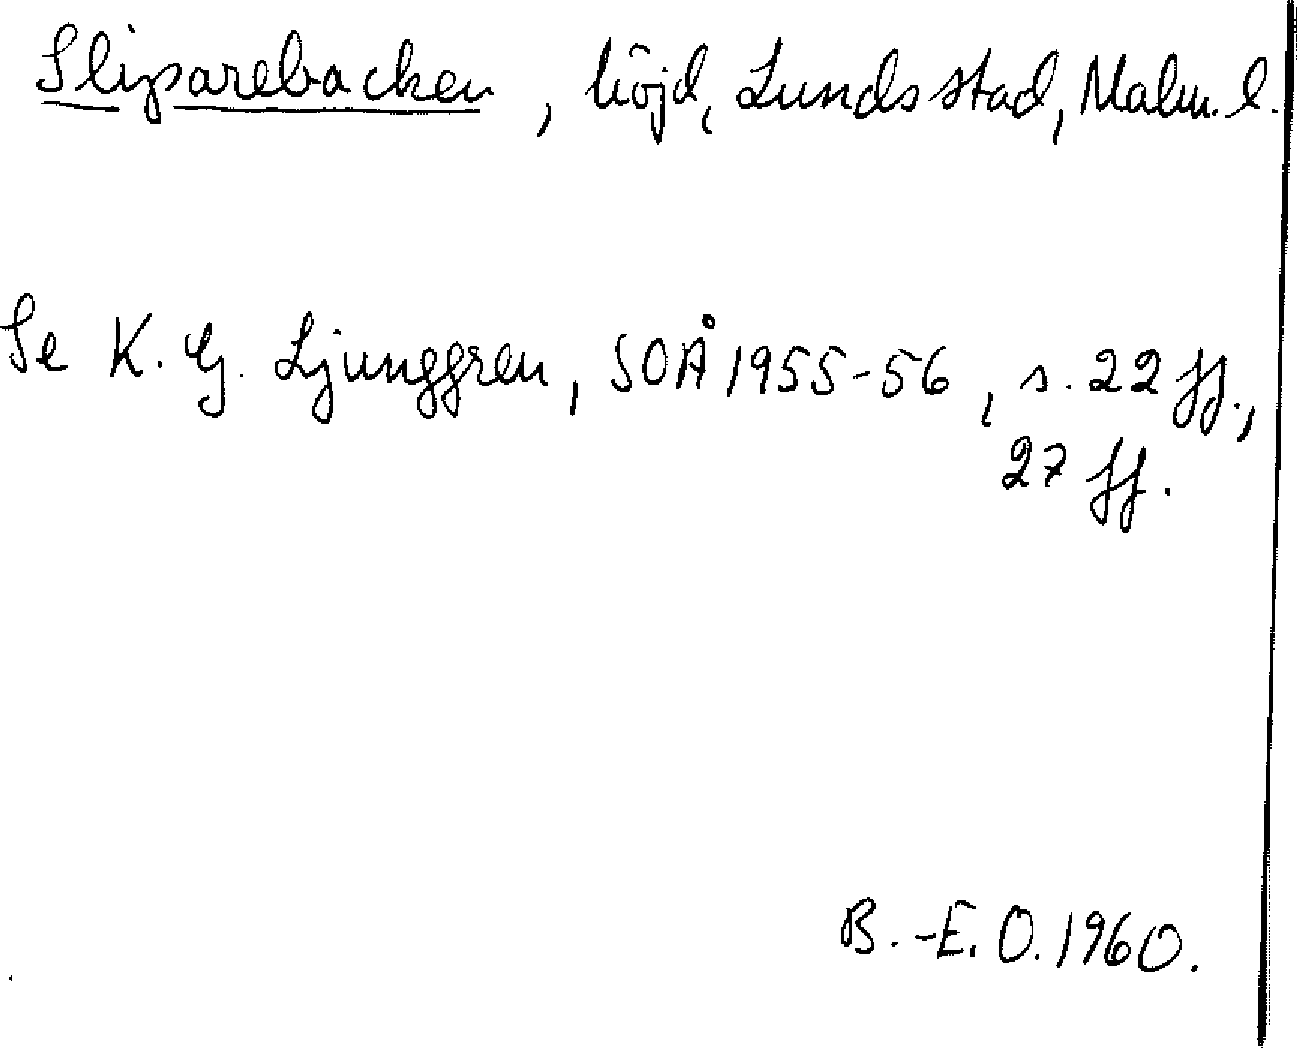 Sliparebacken, höjd, Lunds stad, Malm. l.
Se K. G. Ljunggren, SOÅ 1955-56, s. 22 ff.,
27 ff.
B.-E. O. 1960.